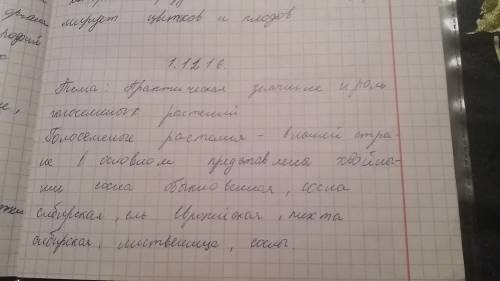 органи
мирует цветков и плодов
1.12 16.
Тема: Практическая значение и роль
голосеменых растений
Голосеменые растения - в нашей стра-
не в основном представлена хвойны-
ми сосна обыкновенная, сосна
сибирская, ель Европейская, пихта
сибирская, лиственница, сосны